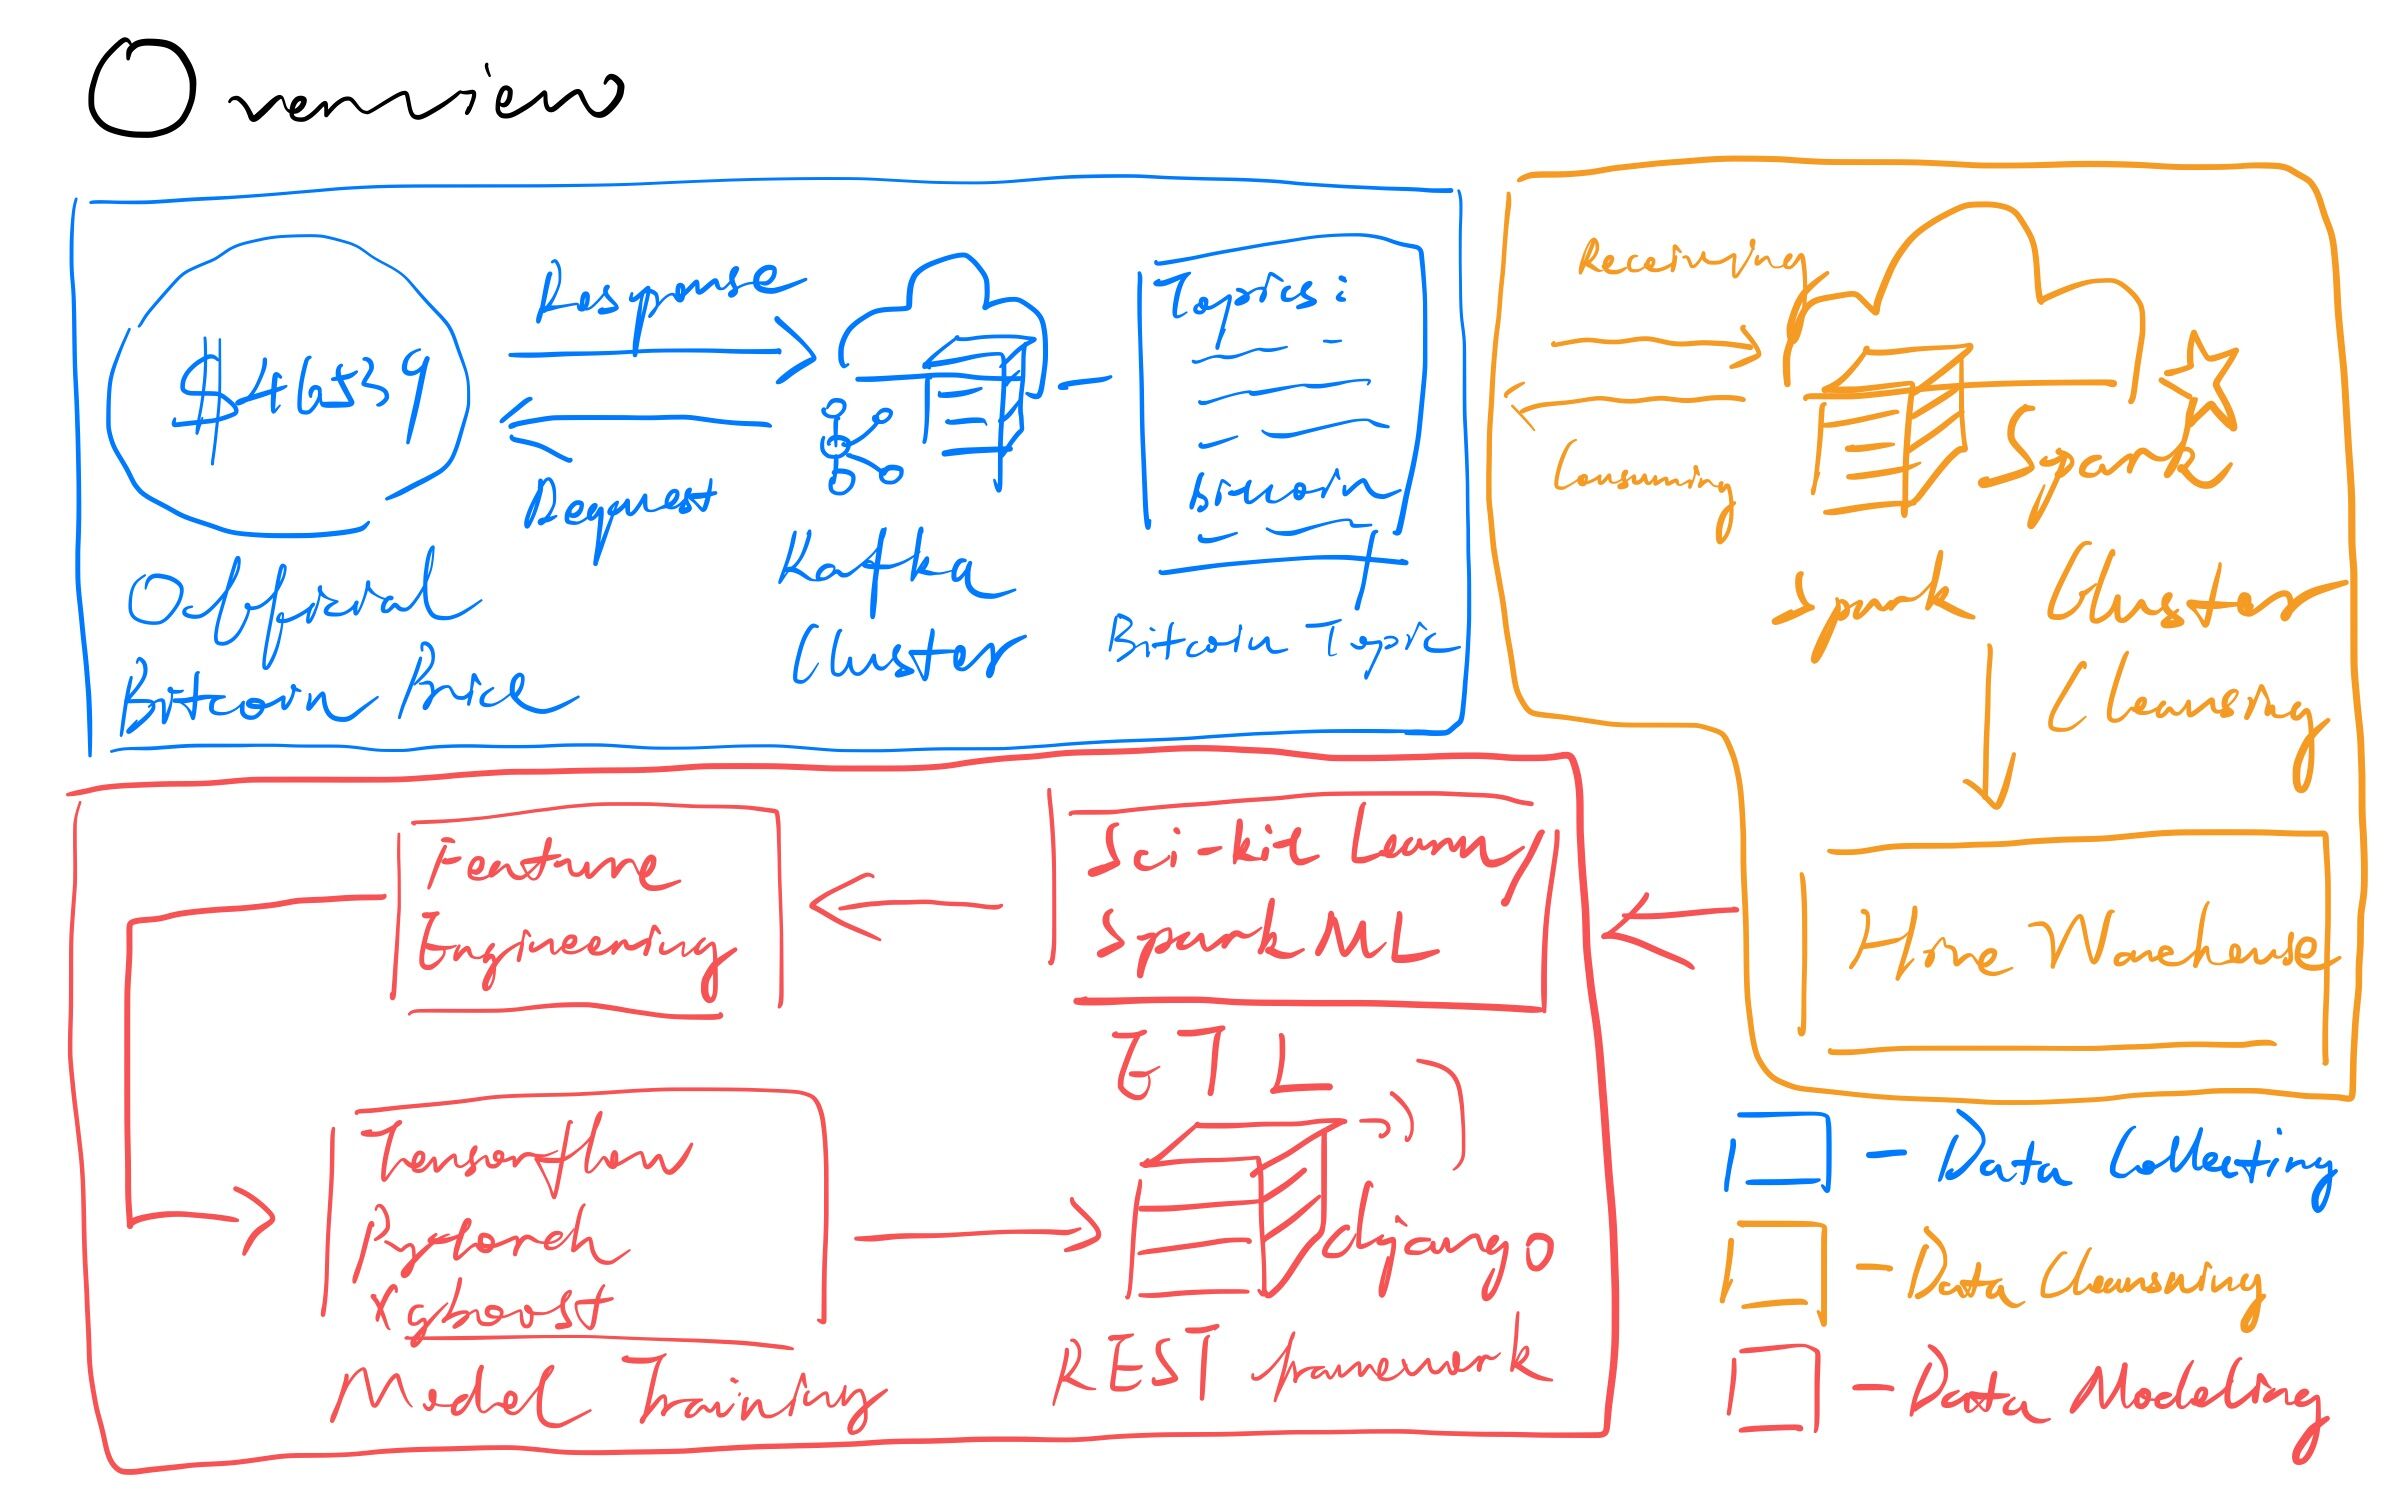 Overview
Response
Request
Kafka
Cluster
Topics:
Bitcoin
Bitcoin Topic
Bitcoin Price
Receiving
Consuming
Spark
Spark Cluster
Cleansing
Warehouse
Sci-kit Learn
Spark ML
ETL
Feature
Engineering
Tensorflow
Pytorch
Xgboost
Model Training
django
REST framework
- Data Collecting
- Data Cleansing
- Data Modeling